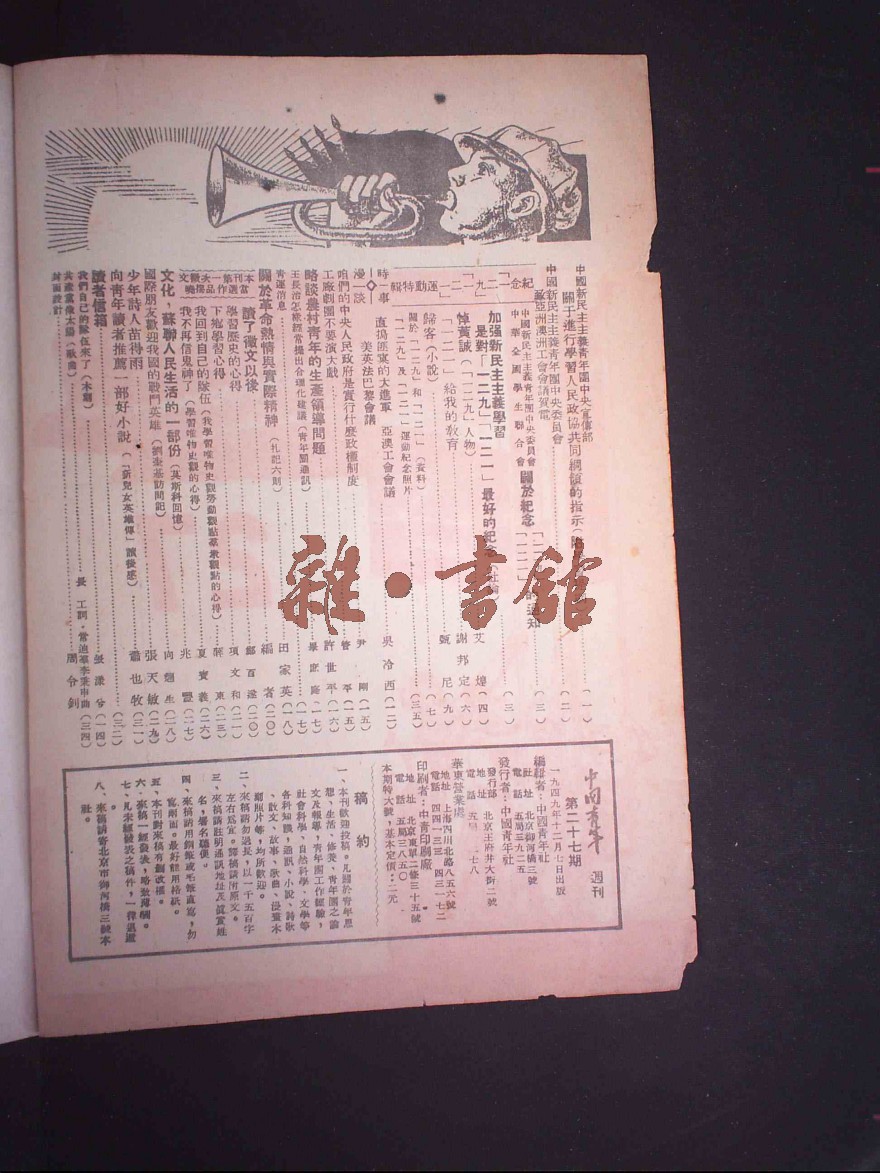 中國新民主主義青年團中央宣傳部
關于進行學習人民政協共同綱領的指示 (一)
中國新民主主義青年團中央委員會
爲亞洲澳洲工會會議賀電 (二)
中國新民主主義青年團中央委員會
中華全國學生聯合會
關於紀念 通知 (三)
紀念「一二九」「一二一」運動特輯
加强新民主主義學習
是對「一二九」「一二一」最好的紀念 艾煌 (四)
悼黃誠(「一二九」人物) 謝邦定 (六)
「一二一」給我的教育 甄尼 (九)
歸客(小說) (七)
關於「一二九」和「一二一」(資料)
「一二九」及「一二一」運動紀念照片 (三五)
時事漫談
直搗匪窩的大進軍 亞澳工會會議
美英法巴黎會議 吳冷西 (一二)
咱們的中央人民政府是實行什麼政權制度 尹剛 (一五)
工廠劇團不要演大戲 許世平 (一六)
略談農村青年的生產領導問題 (一七)
王長治怎樣經常提出合理化建議(青年團通訊) (一七)
青運消息
關於革命熱情與實際精神(札記六則) 田家英 (一八)
本刊第一次徵文當選作品
讀了徵文以後 編者 (二〇)
學習歷史的心得 (二〇)
下鄉學習心得 項文和 (二一)
我回到自己的隊伍(我學習唯物史觀勞動觀點羣衆觀點的心得) (二三)
我不再信鬼神了(學習唯物史觀的心得) 夏寶義 (二六)
文化,蘇聯人民生活的一部份(莫斯科回憶) (二七)
國際朋友歡迎我國的戰鬥英雄(劉奎基訪問記) (二八)
少年詩人苗得雨 張天敏 (二九)
向青年讀者推薦一部好小說(「新兒女英雄傳」讀後感) 蕭也牧 (三一)
讀者信箱 (三二)
我們自己的隊伍來了(木刻) (一四)
共產黨像太陽(歌曲) 長工詞·常迪華李棄申曲 (三四)
封面設計 周令釗
中國青年 週刊
第二十七期
一九四九年十二月七日出版
編輯者:中國青年社
社址 北京御河橋三號
電話 五局三九二五
發行者:中國青年社
發行部
地址 北京王府井大街二號
華東營業處
地址 上海四川北路八五六號
電話 四四一三三 四三一七二
印刷者:中青印刷廠
地址 北京東單二條三十五號
電話 五局三八五〇
本期特大號,基本定價:二元
稿約
一、本刊歡迎投稿。凡關於青年思
想、生活、修養、青年團之論
文及報導,青年團工作經驗,
社會科學、自然科學、文學等
各科知識,通訊、小說、詩歌
、散文、故事、歌曲、漫畫木
刻照片等,均所歡迎。
二、來稿請勿過長,以一千五百字
左右爲宜。譯稿請附原文。
三、來稿請註明通訊地址及眞實姓
名,署名聽便。
四、來稿請用鋼筆或毛筆直寫,勿
寫兩面。最好能用格紙。
五、本刊對來稿有刪改權。
六、來稿一經發表,略致薄酬。
七、凡未經發表之稿件,一律退還
。
八、來稿請寄北京市御河橋三號本
社。
雜·書館